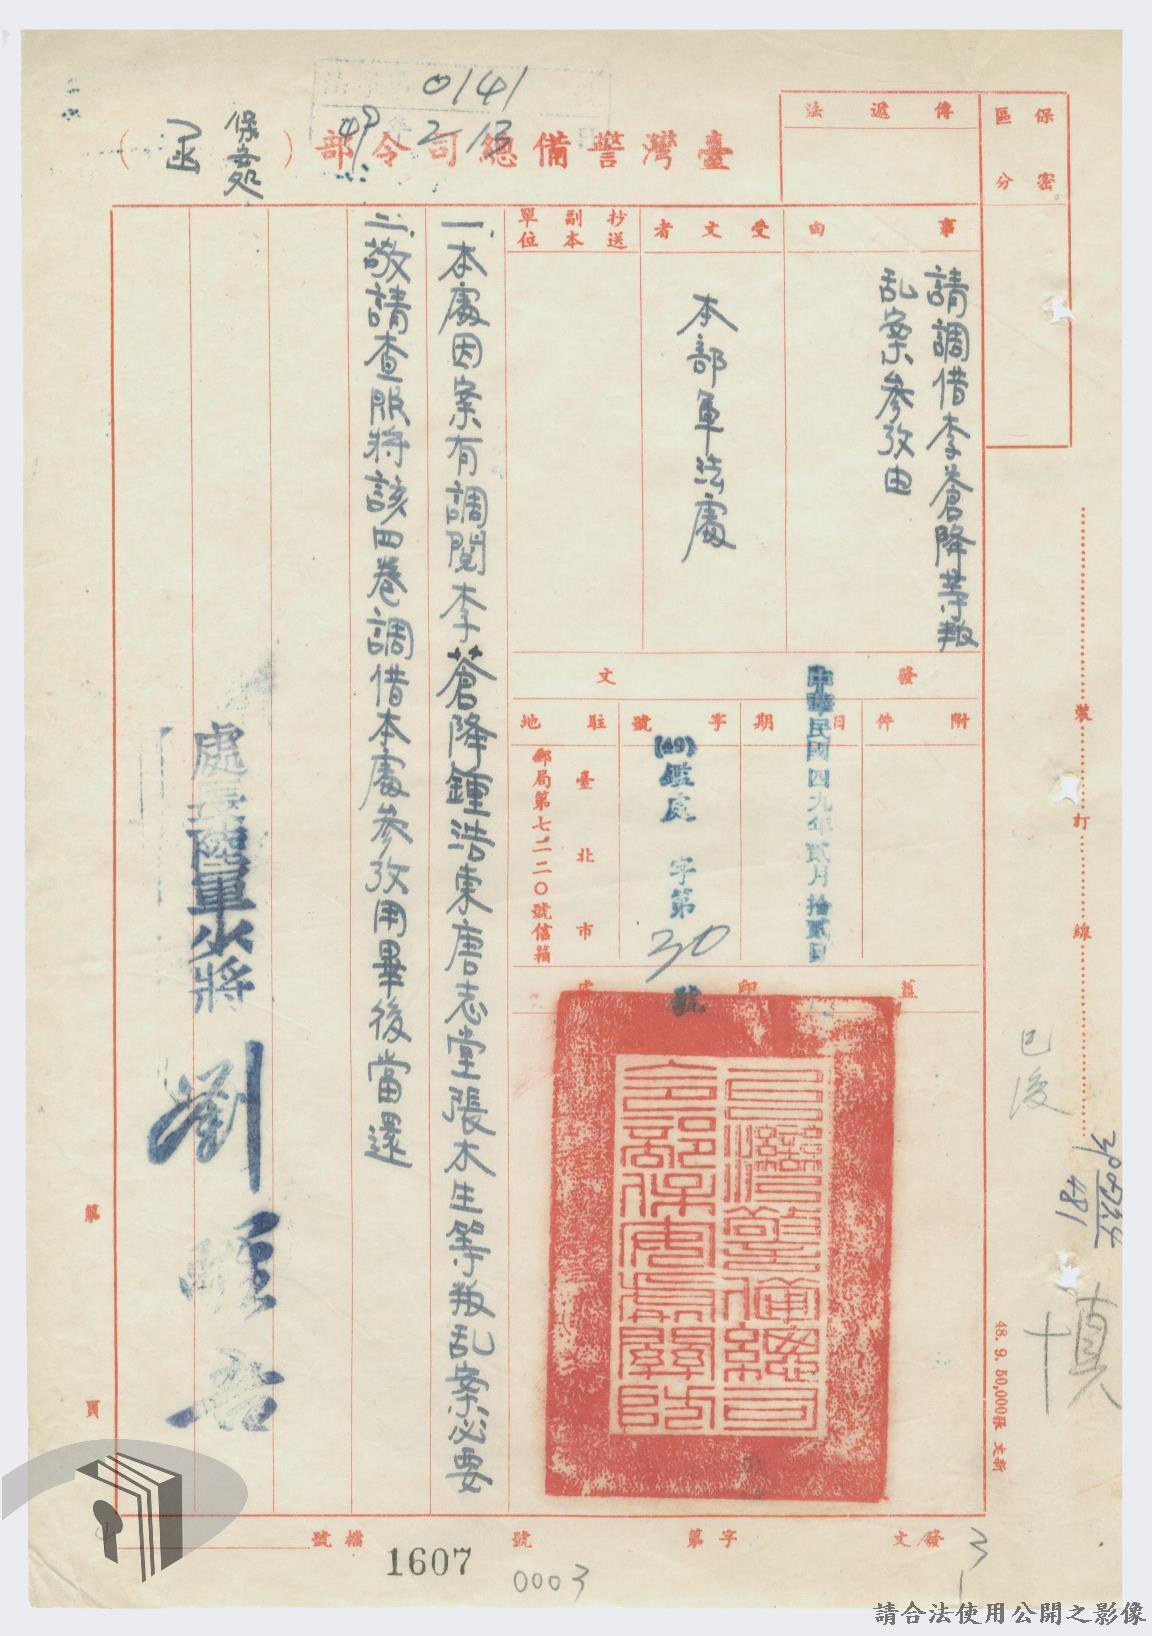 0141
49 2 13
臺灣警備總司令部(保安處)函
保密
區分
傳遞法
事由
請調借李蒼降等叛
乱案參攷由
受文者
本部軍法處
抄送
副本
單位
發文
附件
日期
中華民國四九年貳月拾貳日
字號
(49)鑑處字第30號
駐地
臺北市
郵局第七二二〇號信箱
蓋印處
一、本處因案有調閱李蒼降鍾浩東唐志堂張木生等叛乱案必要
二、敬請查照將該四卷調借本處參攷用畢後當還
處長陸軍少將
裝
訂
線
已復
481
慎
十
48.9.50,000張 文新
第
頁
發文
字第
號
檔號
1607
0003
3
1
請合法使用公開之影像